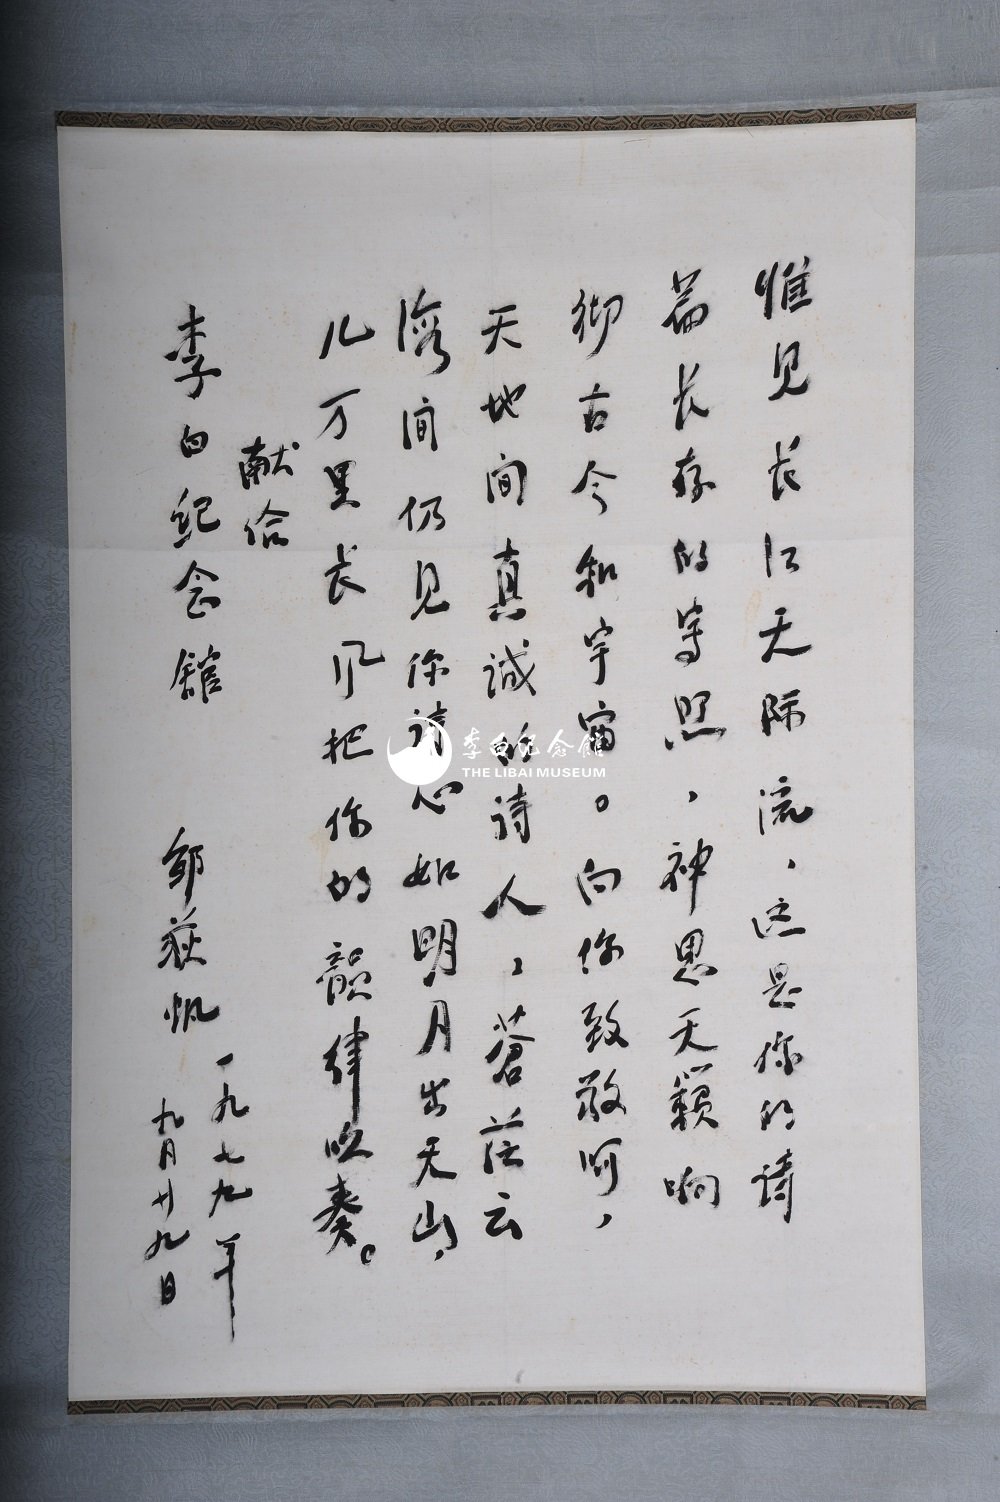 惟见长江天际流，这是你的诗
篇长存的写照，神思天籁响
彻古今和宇宙。向你致敬呵，
天地间真诚的诗人，苍茫云
海间仍见你诗心如明月出天山，
几万里长风把你的韵律吹奏。
献给
李白纪念馆
邹荻帆
一九七九年
九月廿九日
李白纪念馆
THE LIBAI MUSEUM